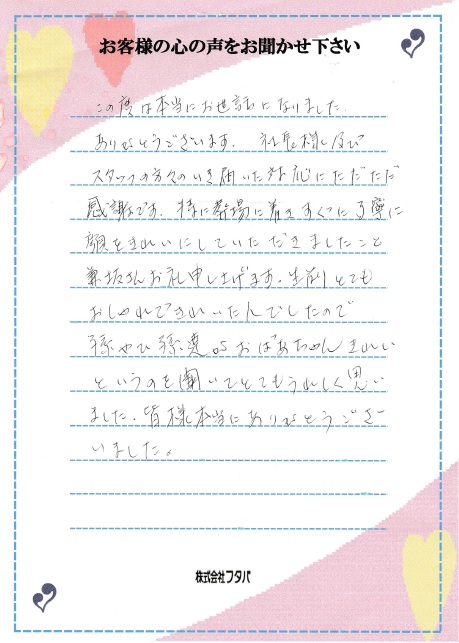 お客様の心の声をお聞かせ下さい
この度は本当にお世話になりました.
ありがとうございます. 社長様及び
スタッフの方々のいき届いた対応にただただ
感謝です. 特に斎場に着きすぐに丁寧に
顔をきれいにしていただきましたこと
坂さんお礼申し上げます. 生前とても
おしゃれできれいたんでしたので
孫やひ孫達からおばあちゃんきれい
というのを聞いてとてもうれしく思い
ました. 皆様本当にありがとうござ
いました。
株式会社フタバ